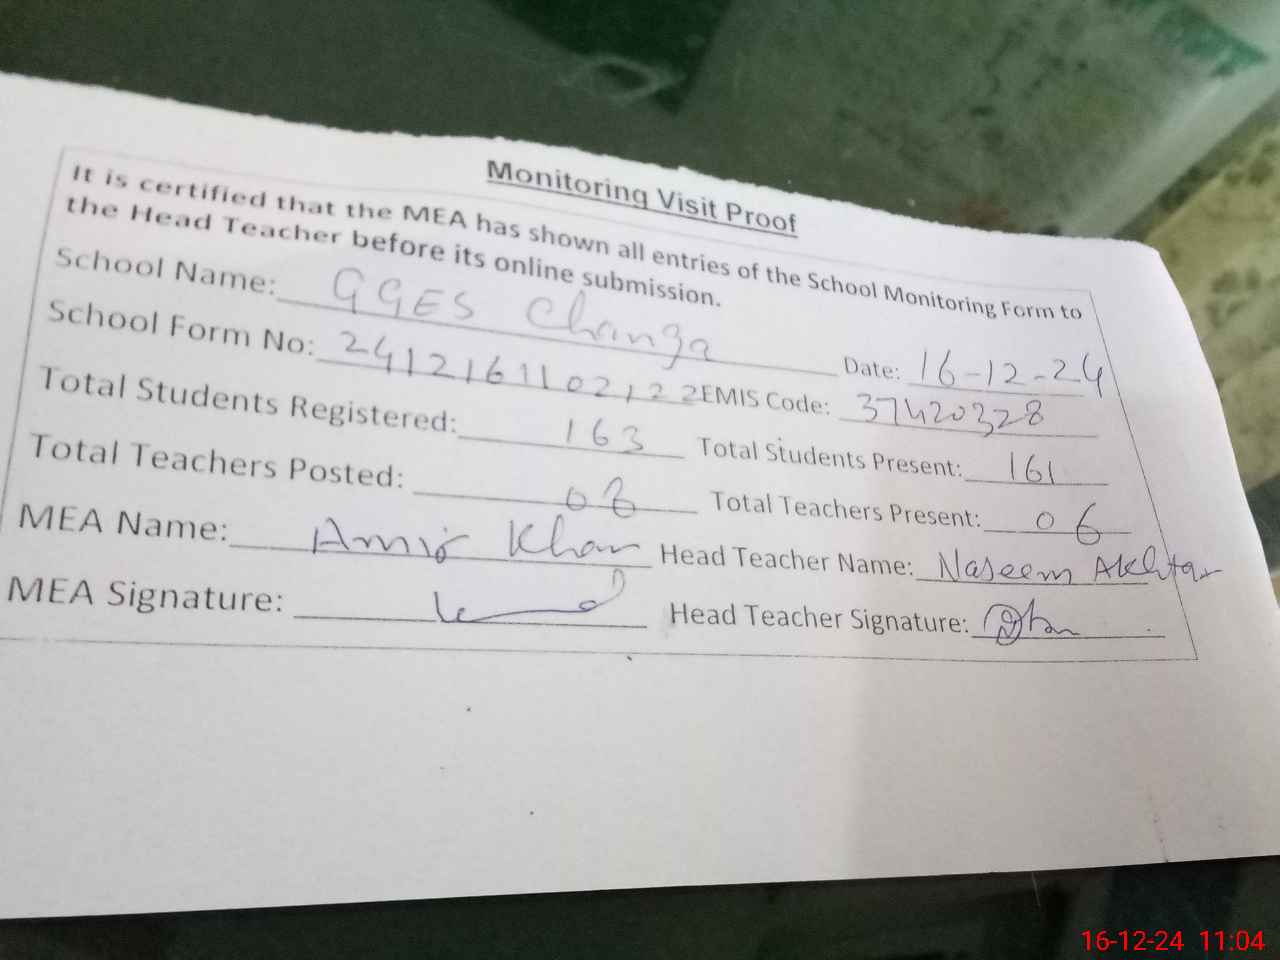 Monitoring Visit Proof
It is certified that the MEA has shown all entries of the School Monitoring Form to
the Head Teacher before its online submission.
School Name: GGES Changa Date: 16-12-24
School Form No: 2412161102122 EMIS Code: 37420328
Total Students Registered: 163 Total Students Present: 161
Total Teachers Posted: Total Teachers Present: 06
MEA Name: Amir Khan Head Teacher Name: Naseem Akhtar
MEA Signature: Head Teacher Signature:
16-12-24 11:04